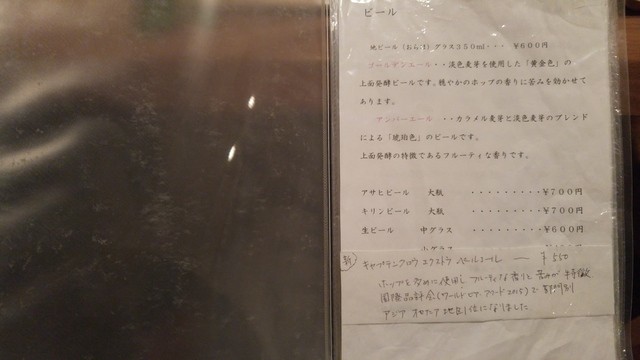 ビール
地ビール（おらほ）グラス350ml・・・ ￥600円
ゴールデンエール・・淡色麦芽を使用した「黄金色」の
上面発酵ビールです。穏やかのホップの香りに苦みを効かせて
あります。
アンバーエール ・・カラメル麦芽と淡色麦芽のブレンド
による「琥珀色」のビールです。
上面発酵の特徴であるフルーティな香りです。
アサヒビール 大瓶 ・・・・・・・・・￥700円
キリンビール 大瓶 ・・・・・・・・・￥700円
生ビール 中グラス ・・・・・・・・・￥600円
キャプテンクロウ エクストラ ペールエール ― ￥550
ホップを多めに使用し フルーティな香りと苦みが特徴
国際品評会(ワールドビアアワード2015)で部門別
アジア オセアニア地区1位になりました